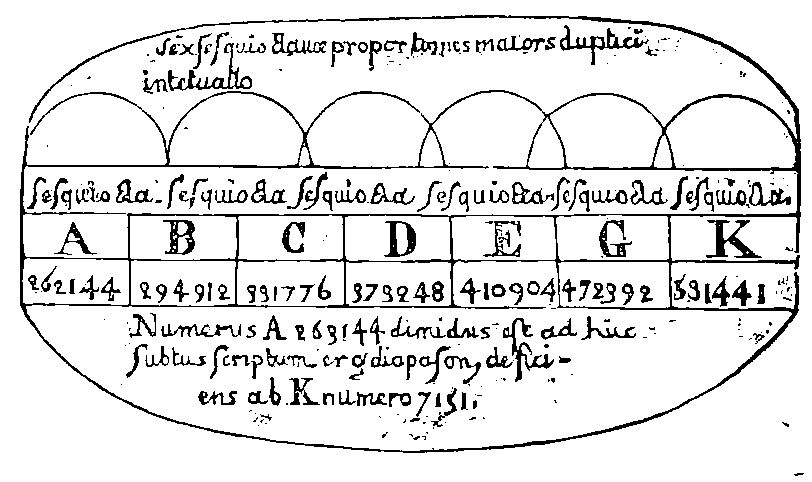 sex sesquioctauæ proportiones maiors duplici
interuallo
sesquiocta. sesquiocta sesquiocta sesquiocta. sesquiocta sesquiocta.
A B C D E G K
262144 294912 331776 373248 410904 472392 531441
Numerus A 263144 dimidus est ad huc
subtus scriptum erg diapason, defici-
ens ab K numero 7151.